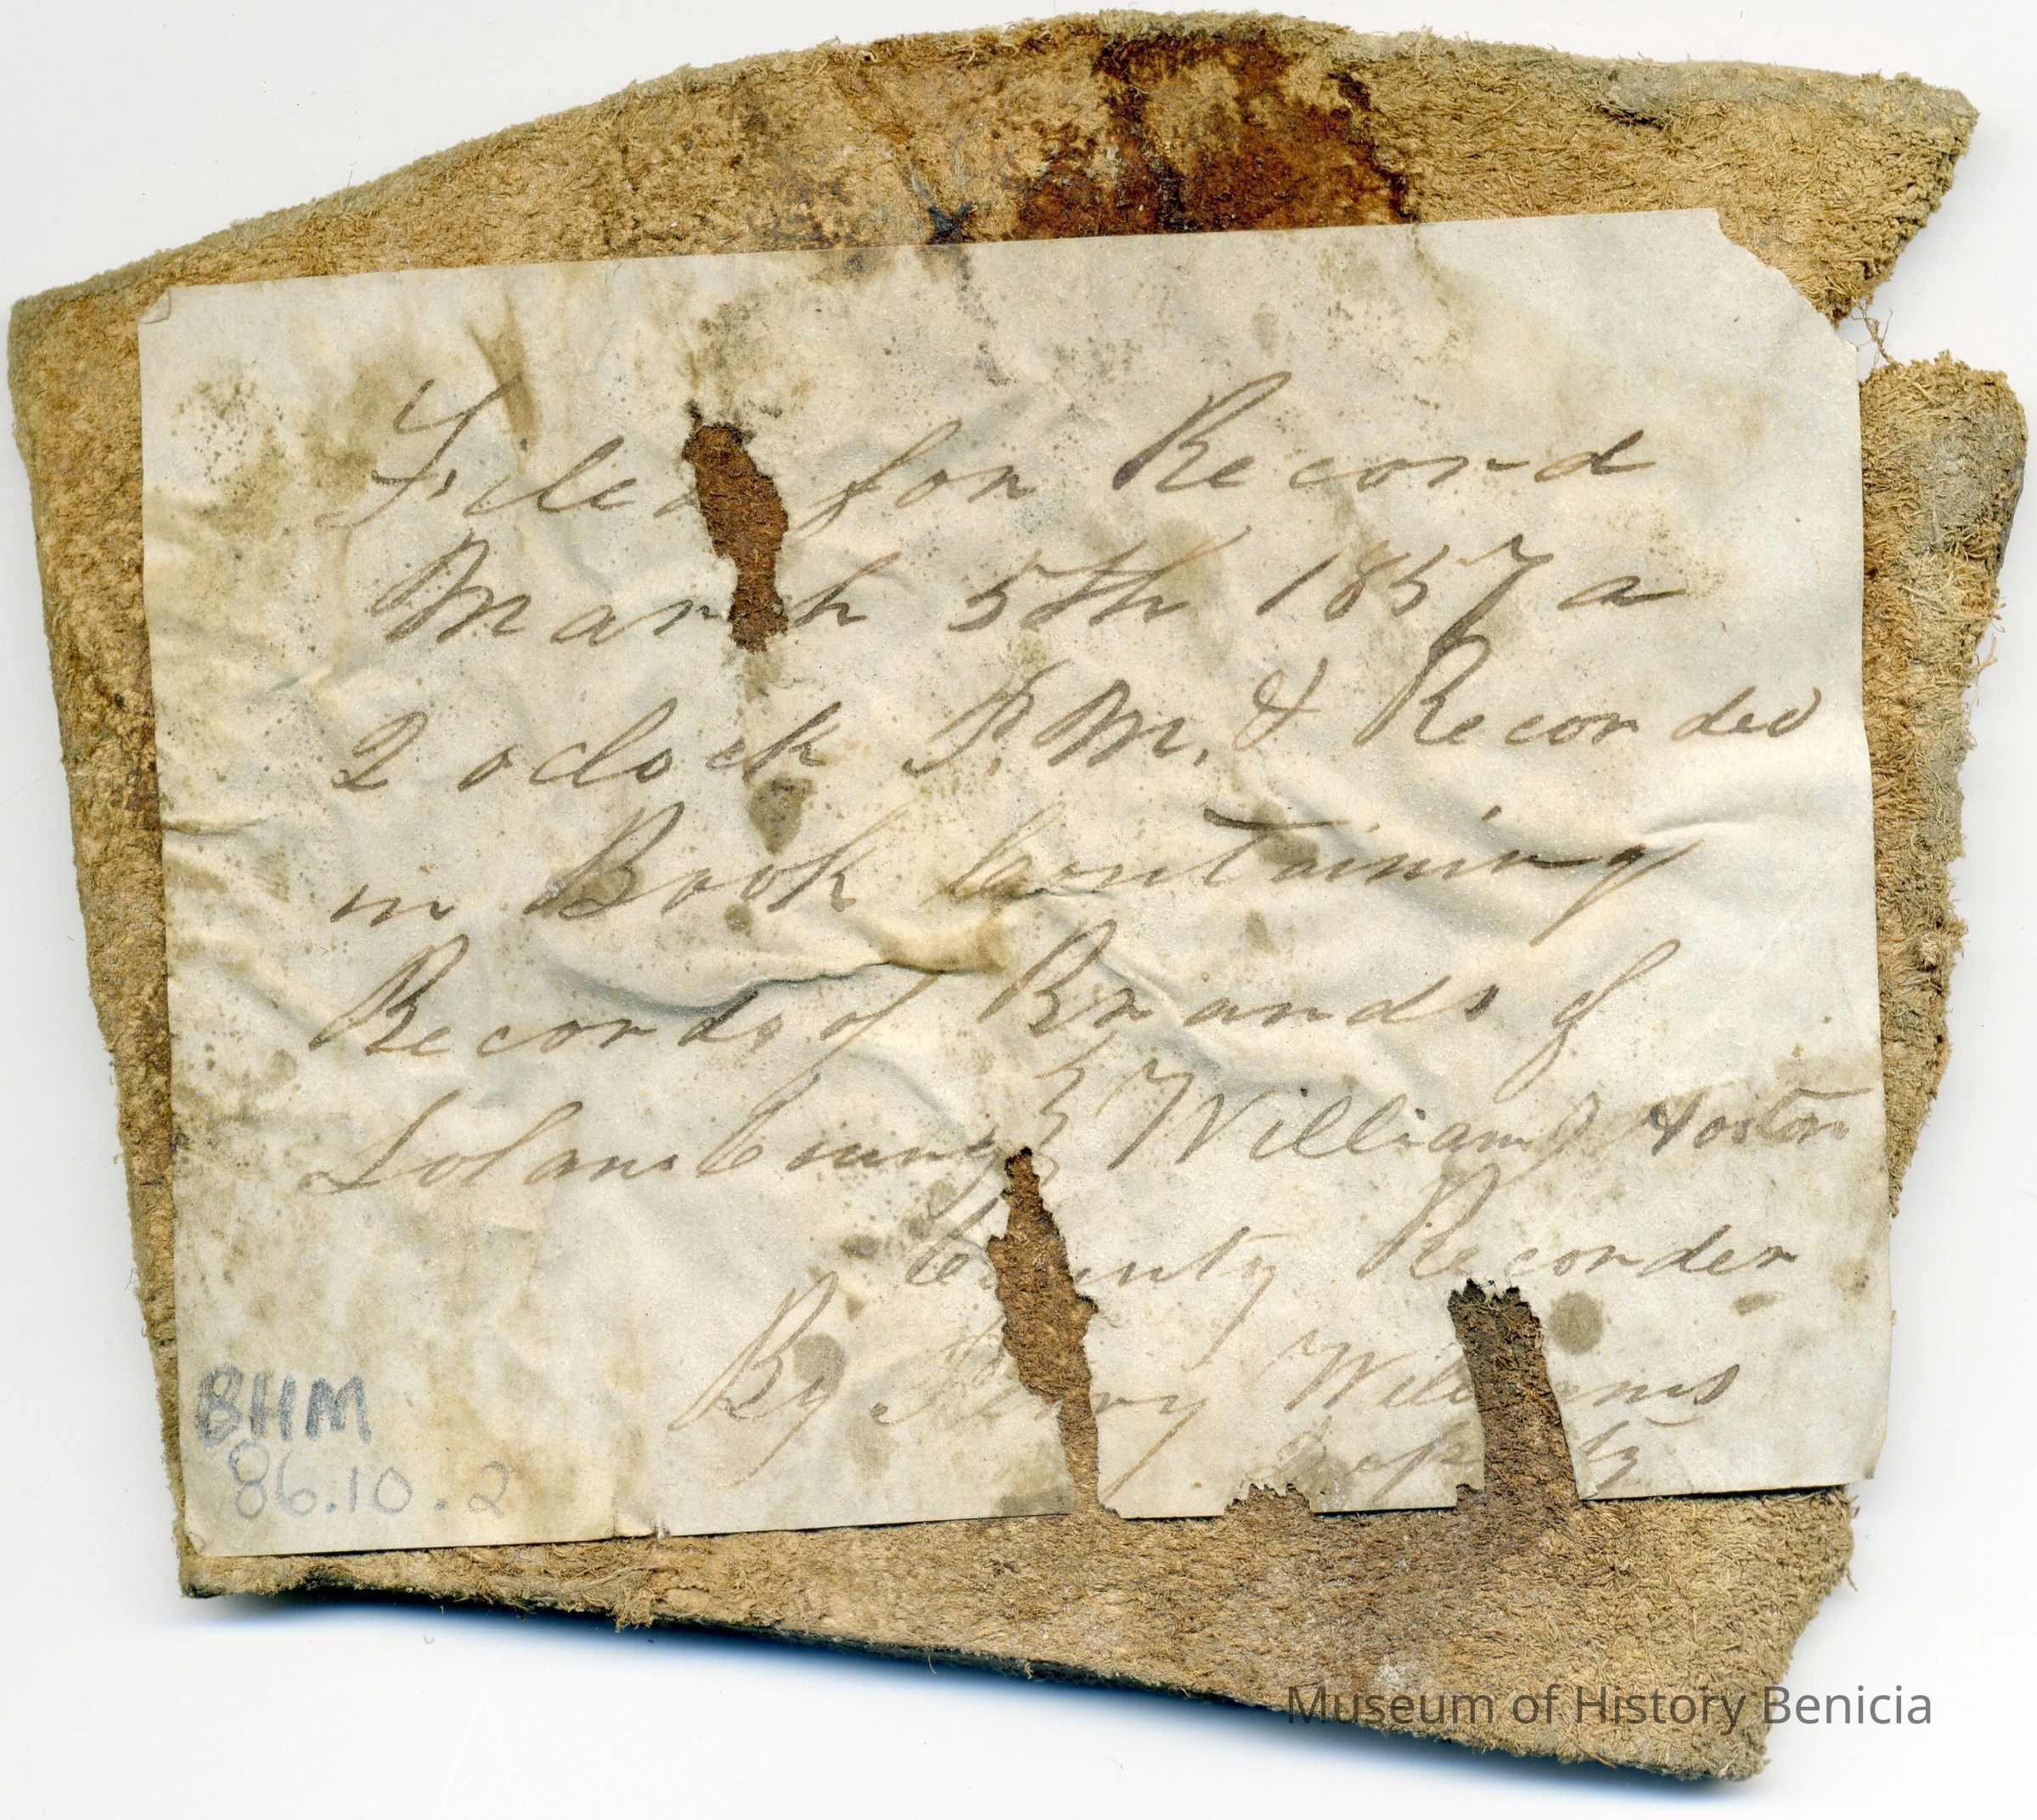 Filed for Record
March 5th 1857 a
2 oclock P.M. & Recorded
in Book Containing
Records of Brands of
Solano County } William J
County Recorder
By Henry Williams
Deputy
BHM
86.10.2
Museum of History Benicia